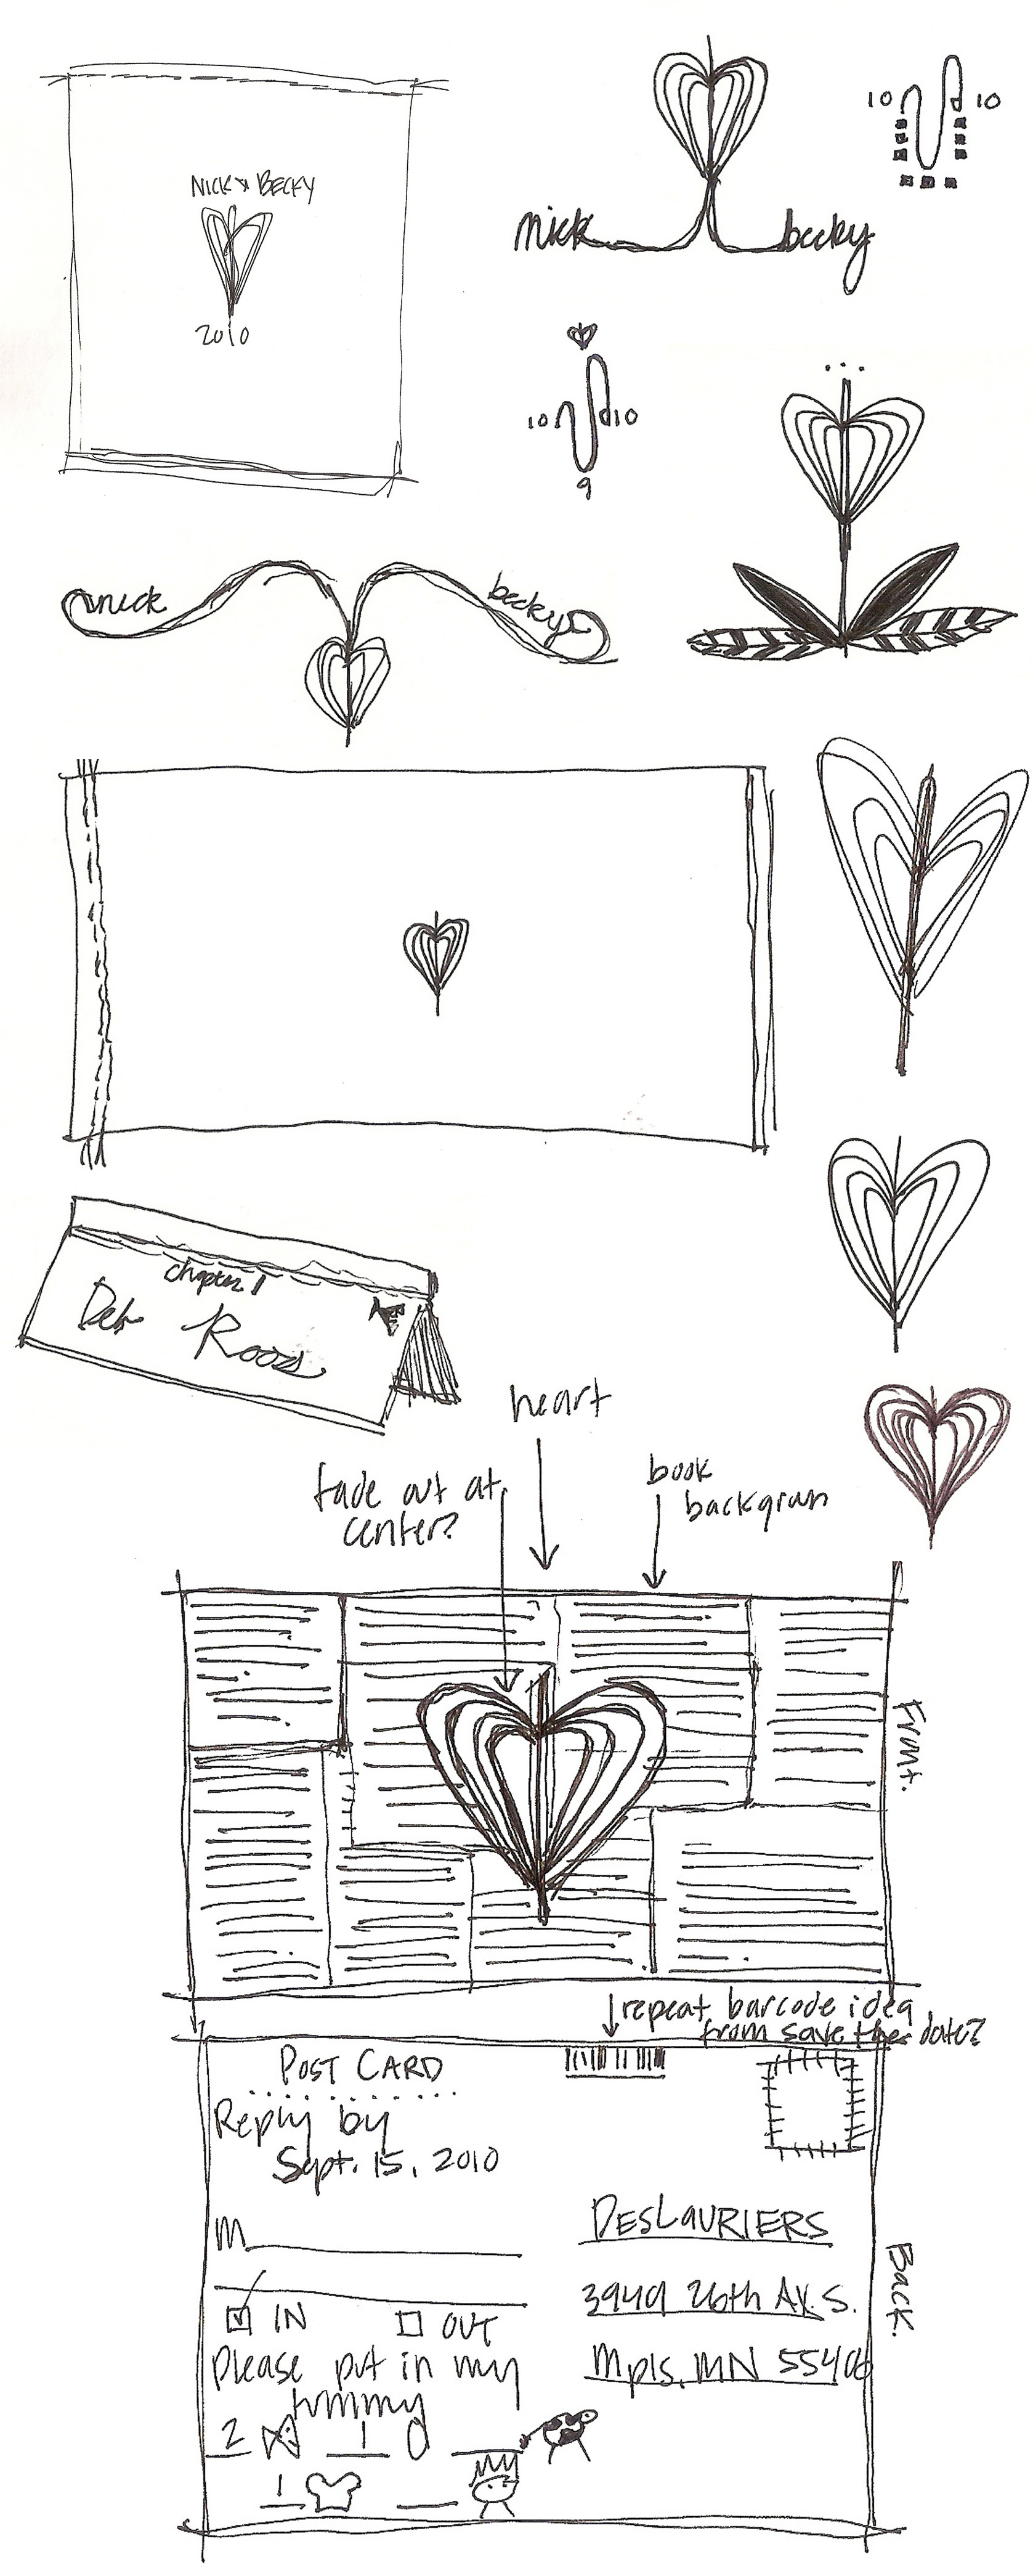 NICK & BECKY
2010
nick becky
10 10
10 10
9
nick becky
chapter 1
Deb Roos
heart
fade out at
center?
book
backgroun
Front.
repeat barcode idea
from save the date?
POST CARD
Reply by
Sept. 15, 2010
M
IN OUT
Please put in my
tummy
2 1
1
DESLAURIERS
3949 26th AV. S.
Mpls, MN 55406
Back.